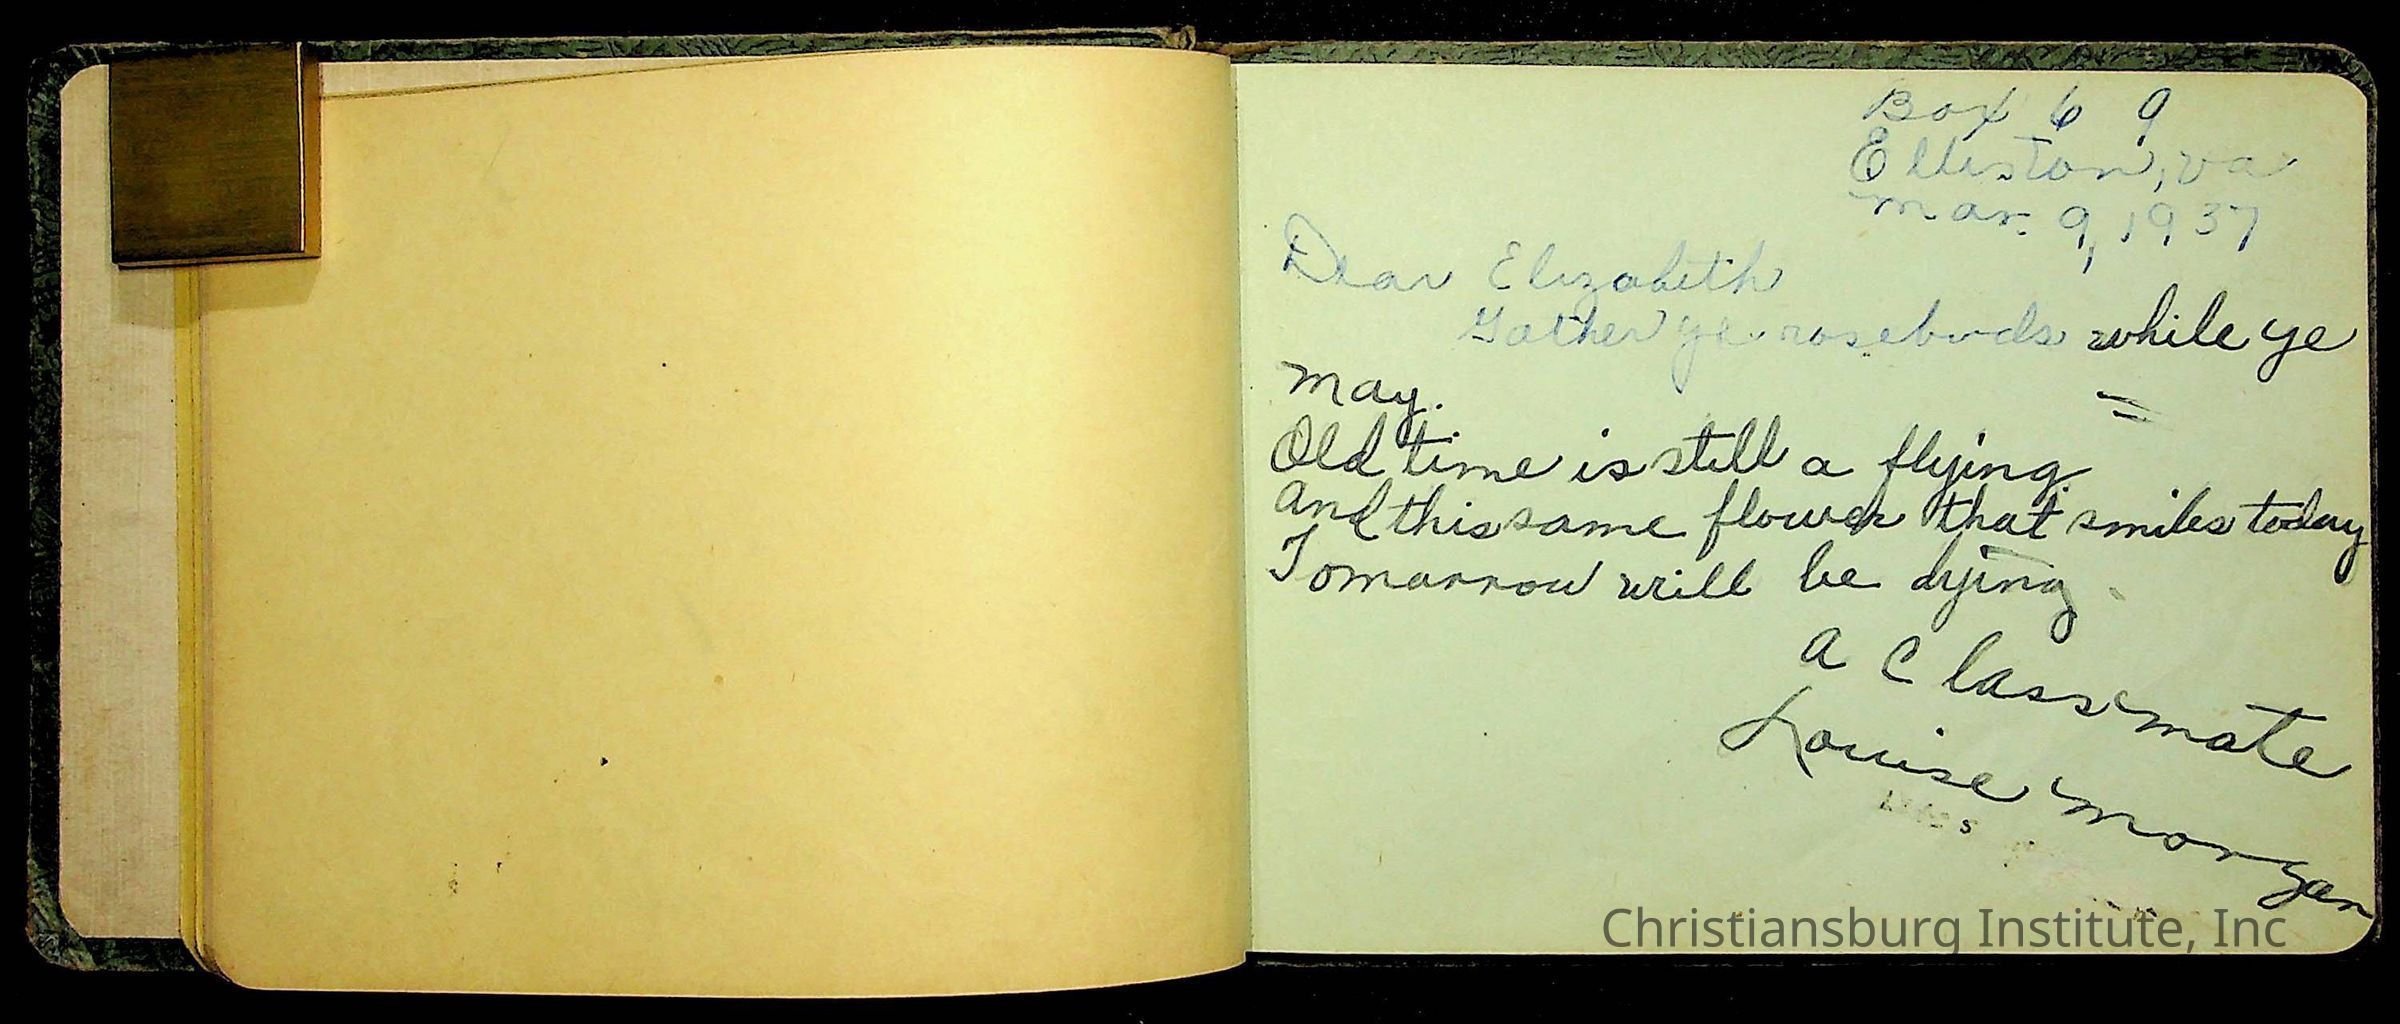 Box 69
Elliston, Va
Mar. 9, 1937
Dear Elizabeth
Gather ye rosebuds while ye
may.
Old time is still a flying.
And this same flower that smiles today
Tomarrow will be dying.
A Classmate
Louise Morgan
Christiansburg Institute, Inc